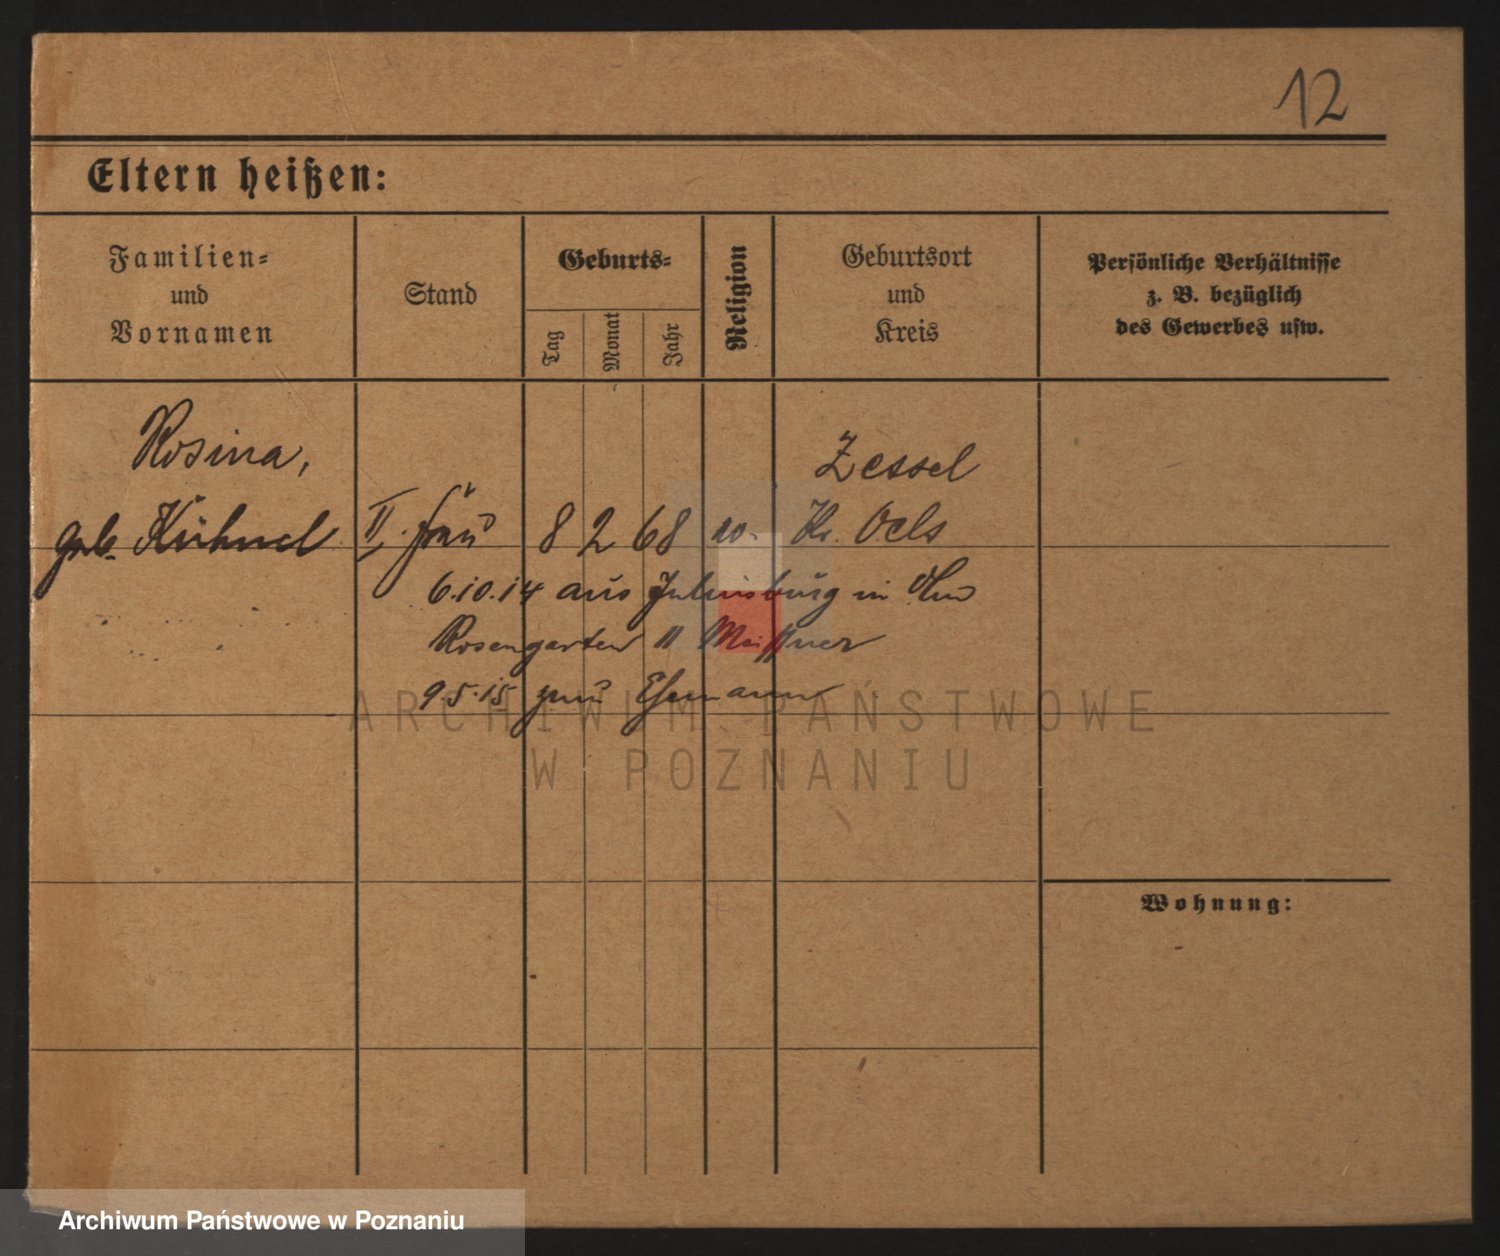 12
Eltern heißen:
Familien-
und
Vornamen
Stand
Geburts-
Tag
Monat
Jahr
Religion
Geburtsort
und
Kreis
Persönliche Verhältnisse
z. B. bezüglich
des Gewerbes usw.
Rosina,
geb. Kühnel
II. Frau
8 2 68
Zessel
Kr. Oels
6.10.14 aus Juliusburg in
Rosengarten 11 Meissner
9.5.15 zum Ehemann
Wohnung:
ARCHIWUM PAŃSTWOWE
W POZNANIU
Archiwum Państwowe w Poznaniu